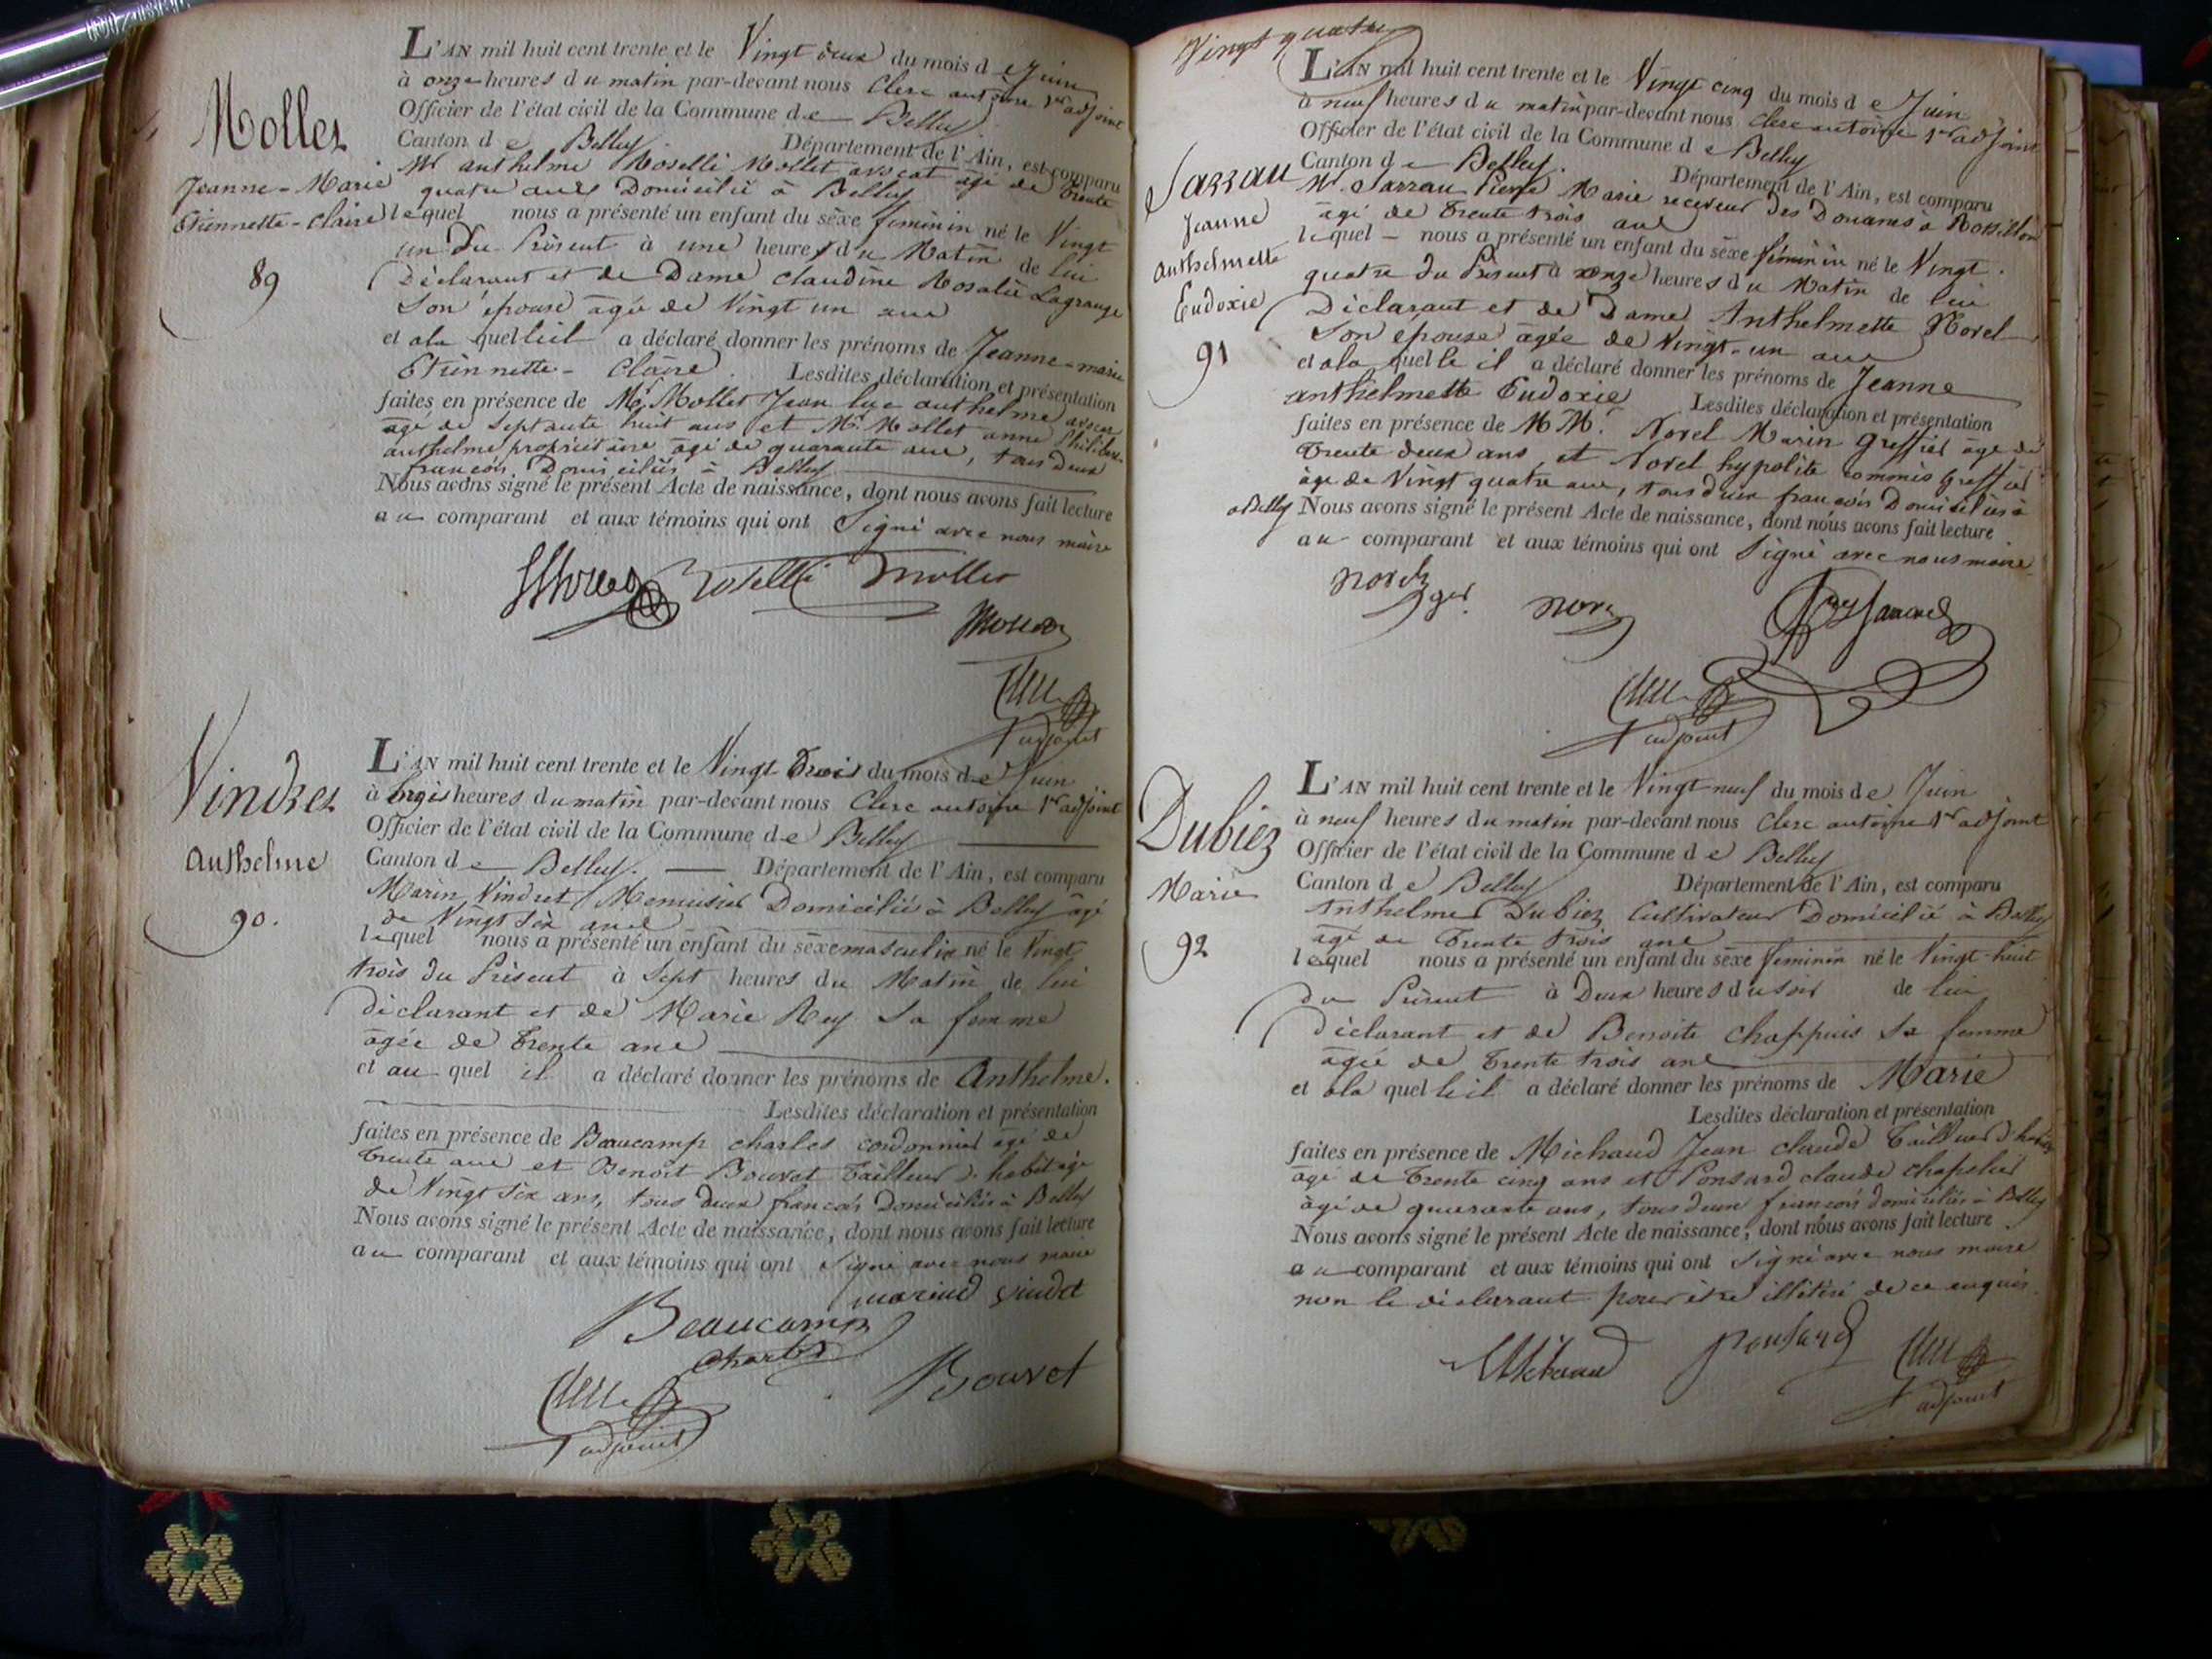 Mollet
Jeanne-Marie
Etiennette-Claire
89
L'AN mil huit cent trente et le Vingt deux du mois de Juin
à onze heures du matin par-devant nous Clerc antoine 1er adjoint
Officier de l'état civil de la Commune de Belley
Canton de Belley Département de l'Ain, est comparu
Mr anthelme Roselli Mollet avocat agé de Trente
quatre ans Domicilié à Belley
lequel nous a présenté un enfant du sèxe feminin né le Vingt
un du Présent à une heures du Matin de lui
Déclarant et de Dame Claudine Rosalie Lagrange
Son épouse agée de Vingt un ans
et ala quelle il a déclaré donner les prénoms de Jeanne-marie
Etiennette-Claire. Lesdites déclaration et présentation
faites en présence de Mr Mollet Jean luc anthelme avocat
agé de Septante huit ans et Mr Mollet anne Philibert
anthelme propriétaire agé de quarante ans, tous deux
francois Domiciliés à Belley
Nous avons signé le présent Acte de naissance, dont nous avons fait lecture
au comparant et aux témoins qui ont Signé avec nous maire
Roselli Mollet
Mollet
Clerc
adjoint
Vindret
Anthelme
90.
L'AN mil huit cent trente et le Vingt Trois du mois de Juin
à onze heures du matin par-devant nous Clerc antoine 1er adjoint
Officier de l'état civil de la Commune de Belley
Canton de Belley. Département de l'Ain, est comparu
Marin Vindret Menuisier Domicilié à Belley agé
de Vingt Six ans
lequel nous a présenté un enfant du sèxe masculin né le Vingt
trois du Présent à Sept heures du Matin de lui
déclarant et de Marie Rey Sa femme
agée de Trente ans
et au quel il a déclaré donner les prénoms de Anthelme.
Lesdites déclaration et présentation
faites en présence de Beaucamp charles cordonnier agé de
Trente ans et Benoit Bouvet Tailleur d. habit agé
de Vingt Six ans, tous deux francois Domiciliés à Belley
Nous avons signé le présent Acte de naissance, dont nous avons fait lecture
au comparant et aux témoins qui ont Signé avec nous maire
marind vindret
Beaucamp
Charles
Bouvet
Clerc
adjoint
Vingt quatre
Sarrau
Jeanne
anthelmette
Eudoxie
91
L'AN mil huit cent trente et le Vingt cinq du mois de Juin
à neuf heures du matin par-devant nous Clerc antoine 1er adjoint
Officier de l'état civil de la Commune de Belley
Canton de Belley. Département de l'Ain, est comparu
Mr. Sarrau Pierre Marie receveur des Douanes à Rossillon
agé de Trente trois ans
lequel nous a présenté un enfant du sèxe féminin né le Vingt
quatre du Présent à onze heures du Matin de lui
Déclarant et de Dame Anthelmette Norel
Son épouse agée de Vingt-un ans
et ala quelle il a déclaré donner les prénoms de Jeanne
anthelmette Eudoxie Lesdites déclaration et présentation
faites en présence de MM. Norel Marin Greffier agé de
Trente deux ans, et Norel hypolite commis Greffier
agé de Vingt quatre ans, tous deux francois Domiciliés à
a Belley Nous avons signé le présent Acte de naissance, dont nous avons fait lecture
au comparant et aux témoins qui ont Signé avec nous maire
Norel ger.
Norel
Clerc
adjoint
Dubiez
Marie
92
L'AN mil huit cent trente et le Vingt neuf du mois de Juin
à neuf heures du matin par-devant nous Clerc antoine 1er adjoint
Officier de l'état civil de la Commune de Belley
Canton de Belley Département de l'Ain, est comparu
Anthelme Dubiez Cultivateur Domicilié à Belley
agé de Trente trois ans
lequel nous a présenté un enfant du sèxe feminin né le Vingt-huit
du Présent à Deux heures du Soir de lui
déclarant et de Benoite Chappuis Sa femme
agée de Trente trois ans
et ala quelle il a déclaré donner les prénoms de Marie
Lesdites déclaration et présentation
faites en présence de Michaud Jean claude Tailleur d'habits
agé de Trente cinq ans et Ponsard claude chapelier
agé de quarante ans, tous deux francois domiciliés à Belley
Nous avons signé le présent Acte de naissance, dont nous avons fait lecture
au comparant et aux témoins qui ont Signé avec nous maire
non le déclarant pour être illétiré de ce enquis.
Michaud
Ponsard
Clerc
adjoint